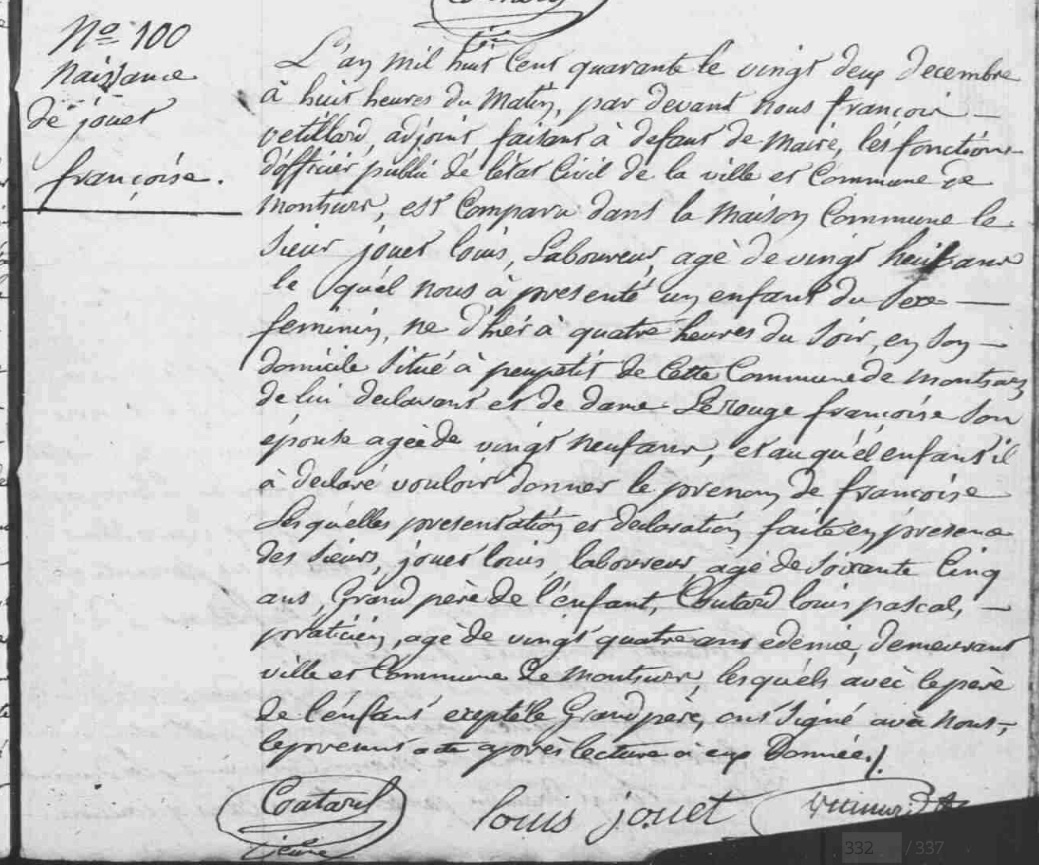 Nº 100
naissance
de jouet
françoise.
L'an mil huit cent quarante le vingt deux decembre
à huit heures du matin, par devant nous françois
vetillard, adjoint faisant à defaut de maire, les fonctions
d'officier public de l'état civil de la ville et commune de
montsurs, est comparu dans la maison commune le
sieur jouet louis, laboureur, agé de vingt huit ans
le quél nous à presenté un enfant du sexe
feminin, né d'hiér à quatre heures du soir, en son
domicile situé à de cette commune de montsurs
de lui declarant et de dame Lerouge françoise son
épouse agée de vingt neuf ans, et au quél enfant il
à declaré vouloir donner le prenom de françoise
Lesquélles presentation et declaration faite en presence
des sieurs, jouet louis, laboureur, agé de soixante cinq
ans, Grand père de l'enfant, Coutard louis pascal,
praticien, agé de vingt quatre ans edemie, demeurant
ville et commune de montsurs, lesquéls avéc le père
de l'énfant exepté le Grand pere, ont signé avèc nous,
le present acte après lecture donnée./.
Coutard
jeune
louis jouet
332 / 337